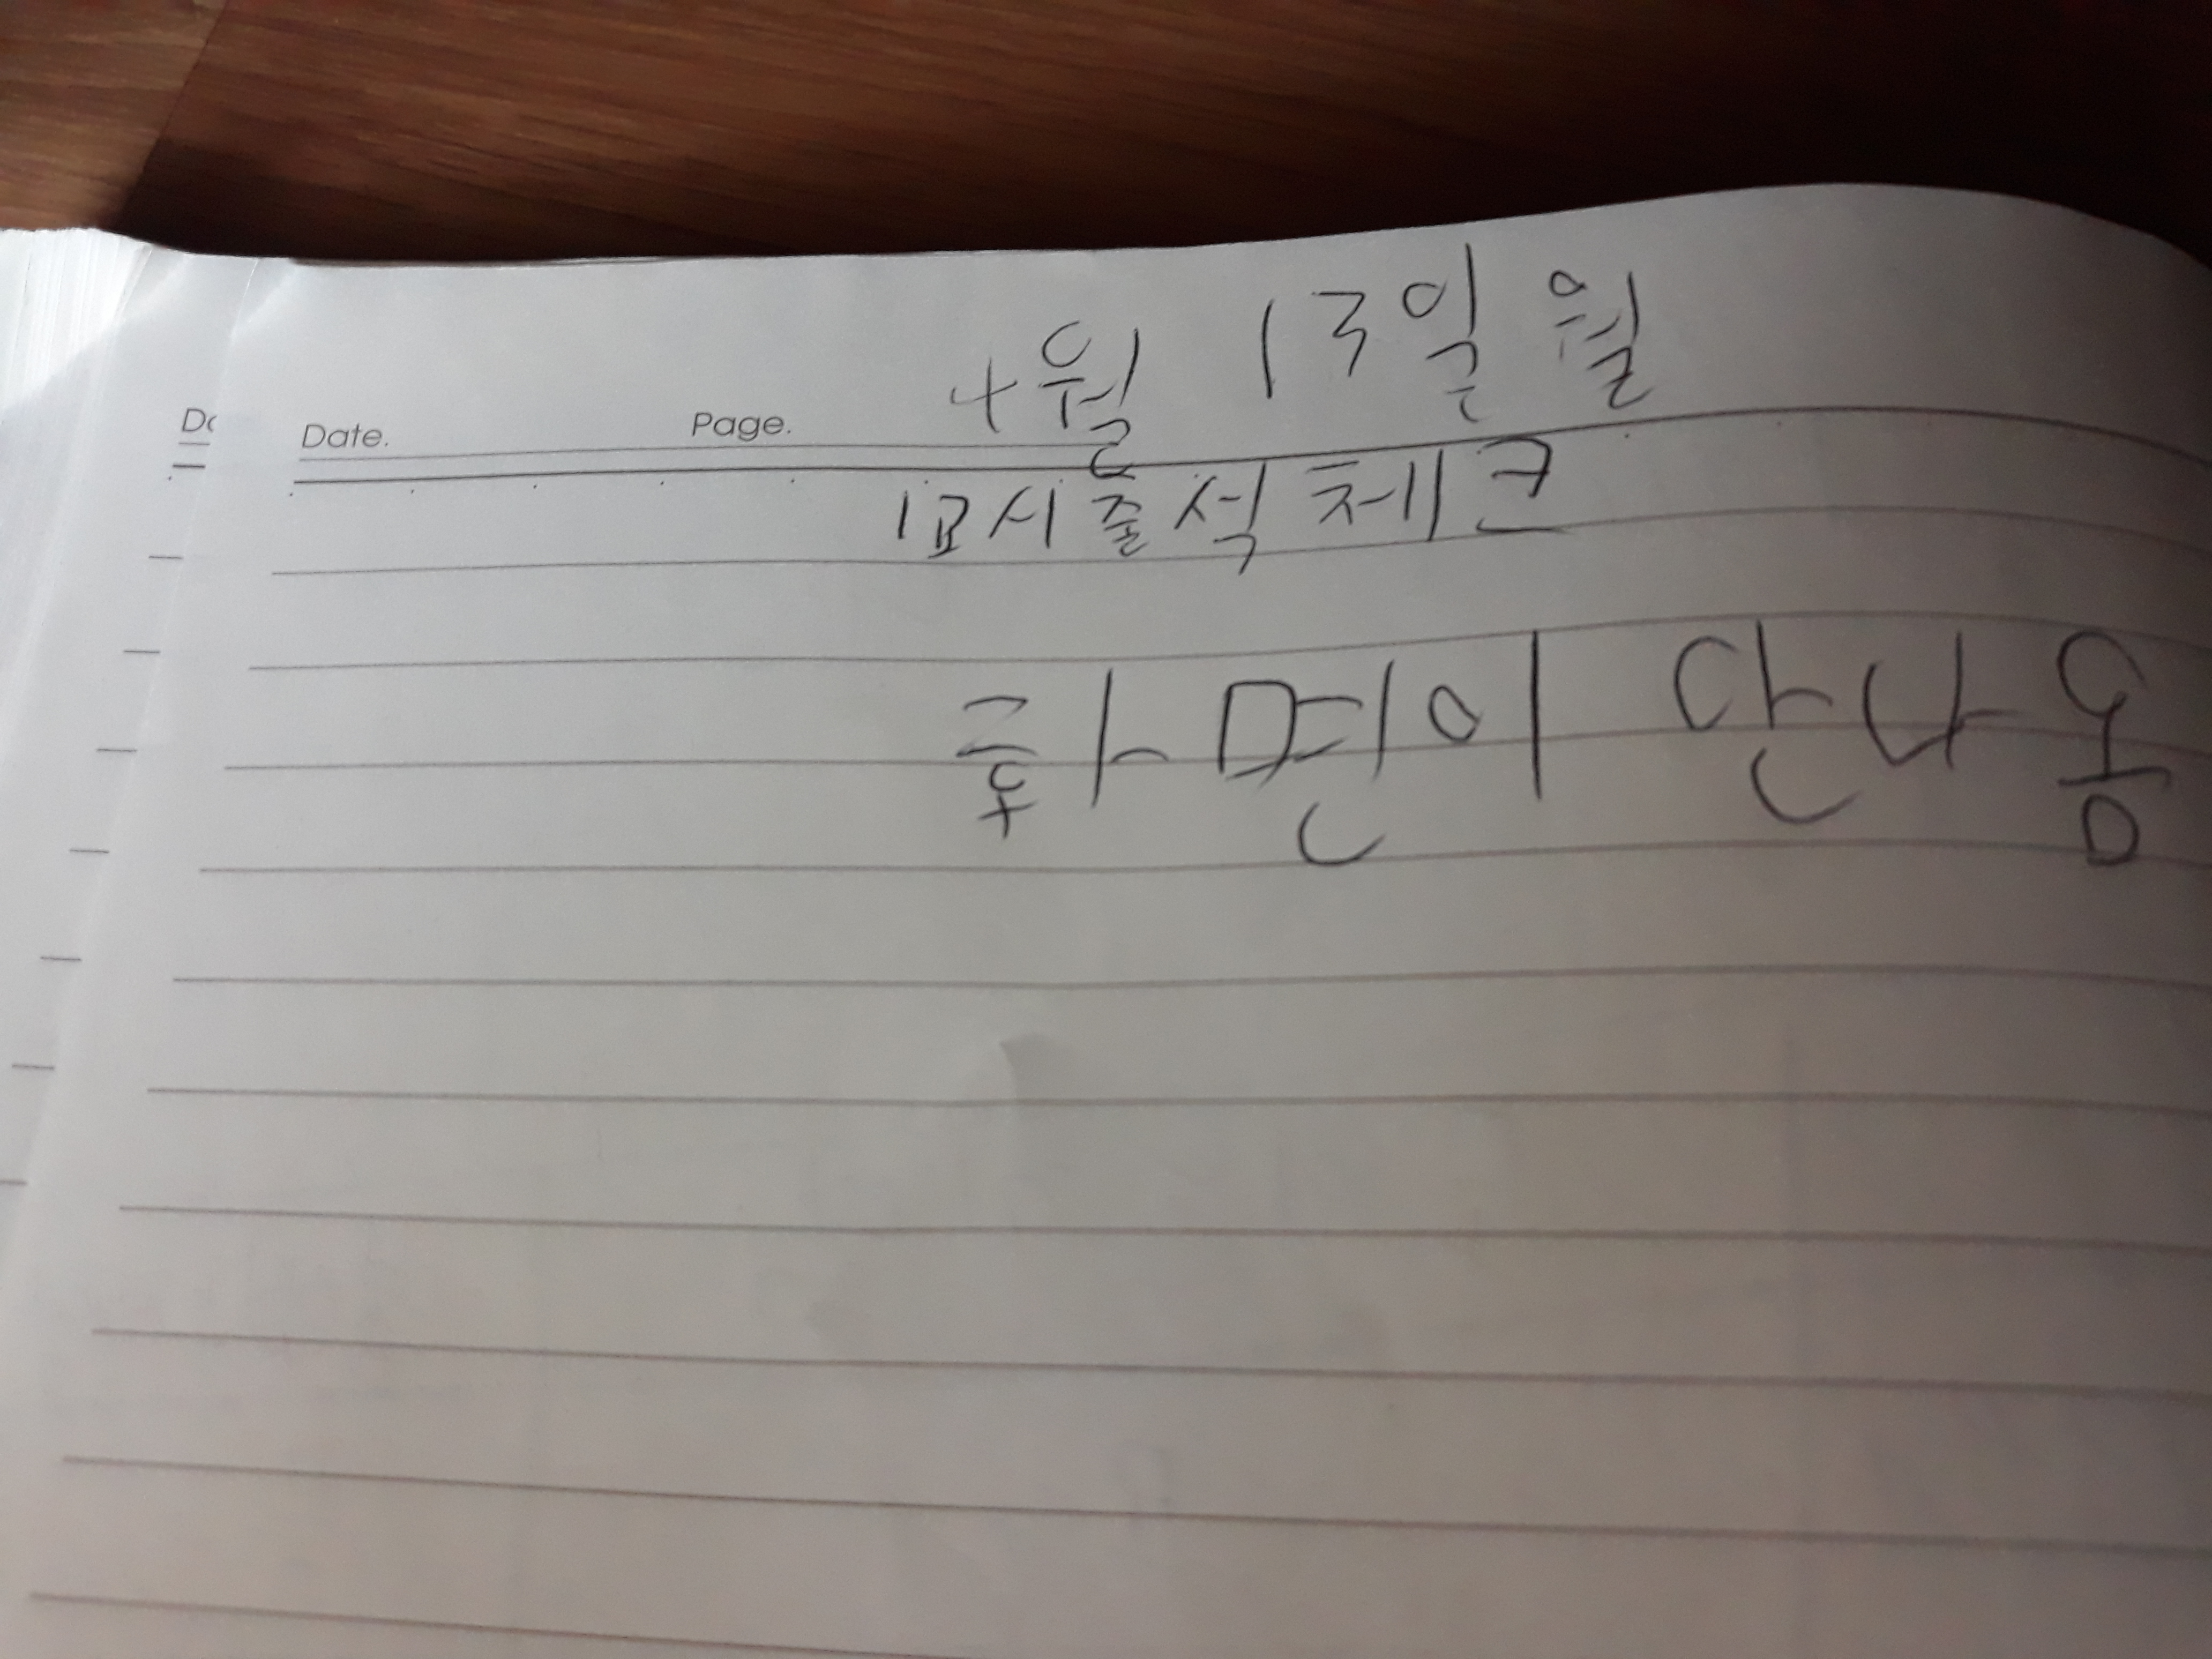 4월 13일 월
Date. Page.
1교시출석체크
화면이 안나옹